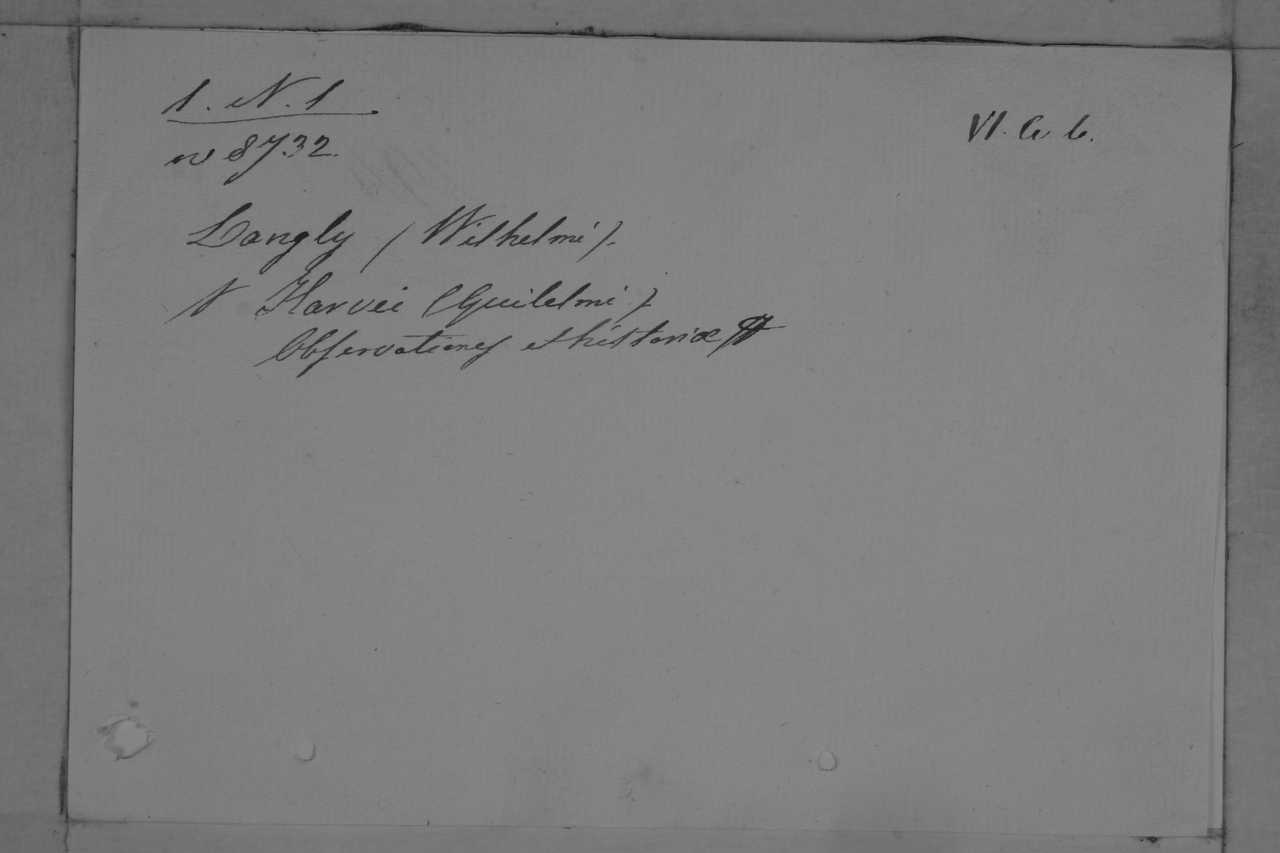 1. N. 1
n 8732.
VI. a b.
Langly (Wilhelmi).
V Harvei (Guilelmi).
Observationes et historiæ